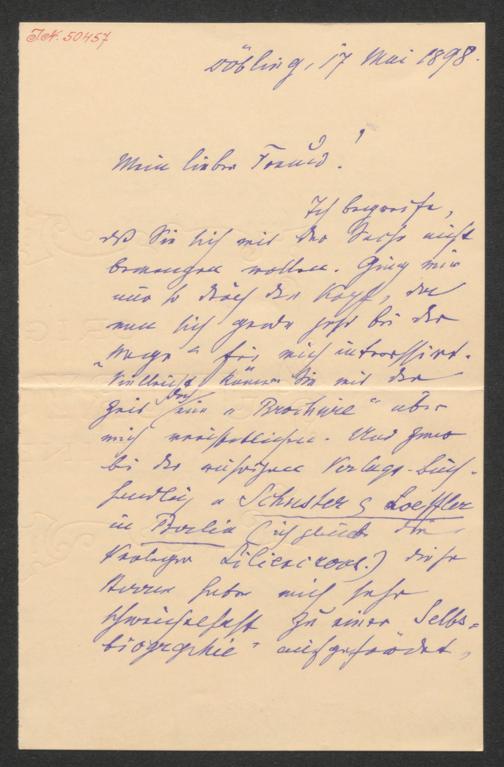 J.N. 50457
Döbling, 17 Mai 1898.
Mein lieber Freund!
Ich begreife,
daß Sie sich mit der Sache nicht
bemengen wollen. Ging mir
nur so durch den Kopf, da
man sich gerade jetzt bei der
„Wage“ für mich interessirt.
Vielleicht können Sie mit der
Zeit doch eine „Brochüre“ über
mich veröffentlichen. Und zwar
bei der rührigen Verlags-Buch-
handlg „Schuster & Loeffler
in Berlin (ich glaube die
Verleger Liliencrons.) Diese
Herren haben mich sehr
schmeichelhaft zu einer Selbst-
biographie“ aufgefordert,